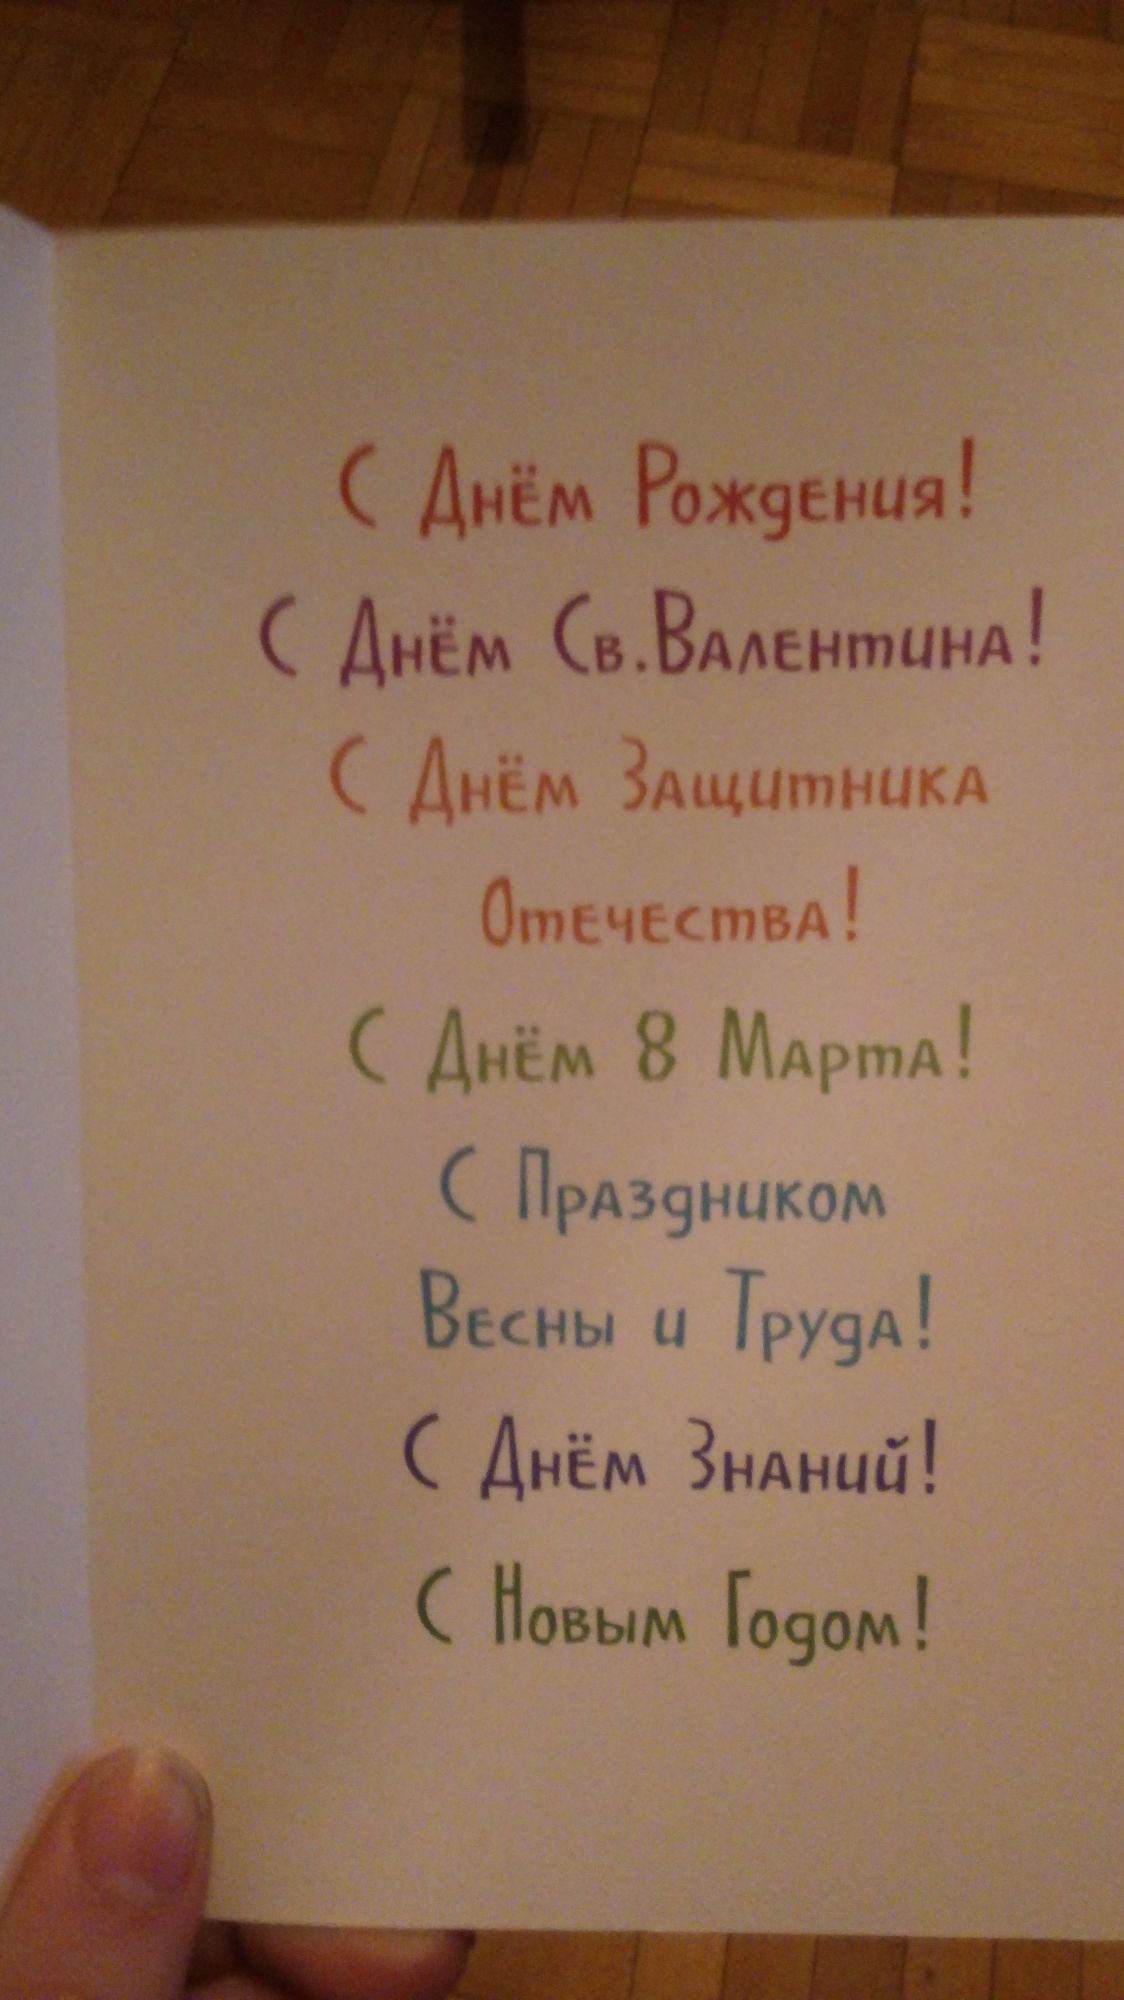 С Днём Рождения!
С Днём Св.Валентина!
С Днём Защитника
Отечества!
С Днём 8 Марта!
С Праздником
Весны и Труда!
С Днём Знаний!
С Новым Годом!